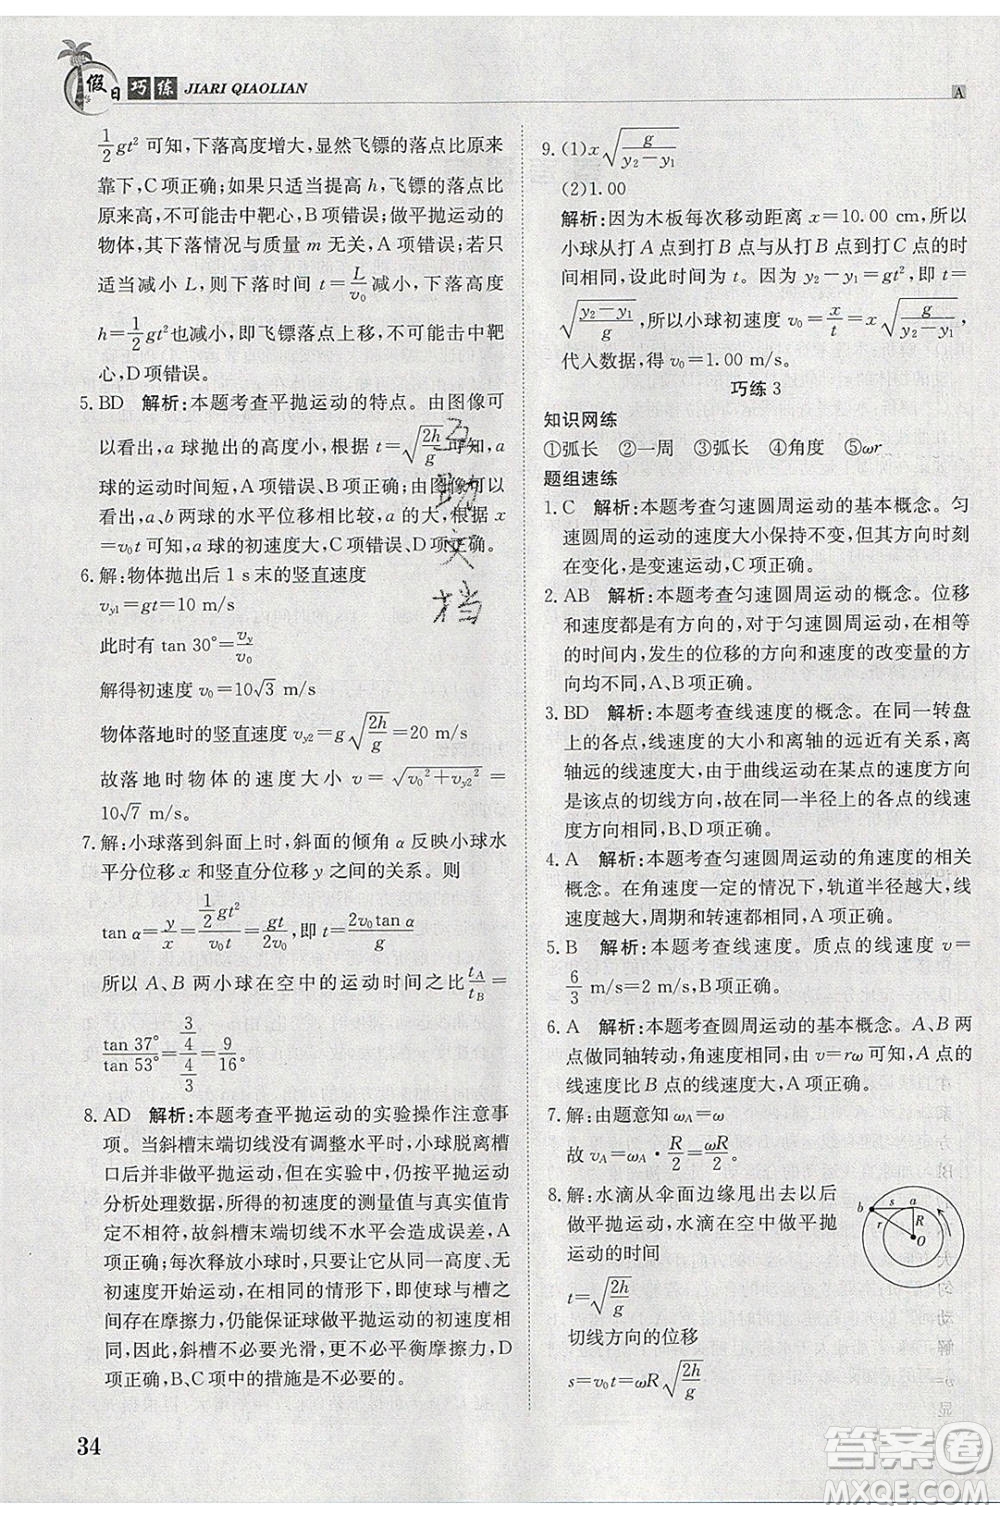 假日巧练 JIARI QIAOLIAN
A
$\frac{1}{2}gt^2$ 可知,下落高度增大,显然飞镖的落点比原来
靠下,C项正确;如果只适当提高 h,飞镖的落点比
原来高,不可能击中靶心,B项错误;做平抛运动的
物体,其下落情况与质量 m 无关,A项错误;如果只
适当减小 L,则运动时间 $t=\frac{L}{v_0}$ 减小,下落高度
$h=\frac{1}{2}gt^2$ 也减小,飞镖落点上移,不可能击中靶
心,D项错误。
5. BD 解析:本题考查平抛运动的特点。由图像可
以看出,a 球抛出的高度小,根据 $t=\sqrt{\frac{2h}{g}}$ 可知,a 球
的运动时间短,A项错误,B项正确;由图像可以
看出,a、b 两球的水平位移相比较,a 的大,根据 x
=v₀t 可知,a 的初速度大,C项错误,D项正确。
6. 解:物体抛出后 1 s 末的竖直速度
$v_{y1}=gt=10$ m/s
此时有 $\tan 30°=\frac{v_y}{v_0}$
解得初速度 $v_0=10\sqrt{3}$ m/s
物体落地时的竖直速度 $v_{y2}=g\sqrt{\frac{2h}{g}}=20$ m/s
故落地时物体的速度大小 $v=\sqrt{v_0^2+v_{y2}^2}=$
$10\sqrt{7}$ m/s
7. 解:小球落到斜面上时,斜面的倾角 α 反映小球水
平分位移 x 和竖直分位移 y 之间的关系。则
$\tan α=\frac{y}{x}=\frac{\frac{1}{2}gt^2}{v_0t}=\frac{gt}{2v_0}$,即 $t=\frac{2v_0\tan α}{g}$
所以 A、B 两小球在空中的运动时间之比 $\frac{t_A}{t_B}=$
$\frac{\tan 37°}{\tan 53°}=\frac{\frac{3}{4}}{\frac{4}{3}}=\frac{9}{16}$
8. AD 解析:本题考查平抛运动的实验操作注意事
项。当斜槽末端切线没有调整水平时,小球脱离槽
口后并非做平抛运动,但在实验中,仍按平抛运动
分析处理数据,所得的初速度的测量值与真实值肯
定不相符,故斜槽末端切线不水平会造成误差,A
项正确;每次释放小球时,只要从同一高度、无
初速度开始运动,在相同的情形下,即使球与槽之
间存在摩擦力,仍能保证球做平抛运动的初速度相
同,因此,斜槽轨道不必光滑,不必平衡摩擦力,D
项正确,B、C项中的措施是不必要的。
34
9. (1) $x\sqrt{\frac{g}{y_2-y_1}}$
(2)1.00
解析:因为木板每次移动距离 x=10.00 cm,所以
小球从打 A 点到打 B 点与从打 B 点到打 C 点的时
间相同,设此时间为 t。因为 $y_2-y_1=gt^2$,即 t=
$\sqrt{\frac{y_2-y_1}{g}}$,所以小球初速度 $v_0=\frac{x}{t}=x\sqrt{\frac{g}{y_2-y_1}}$。
代入数据,得 v₀=1.00 m/s。
巧练 3
知识网练
①弧长 ②一周 ③弧长 ④角度 ⑤ωr
题组速练
1. C 解析:本题考查匀速圆周运动的基本概念。匀
速圆周运动的速度大小保持不变,但其方向时刻
在变化,是变速运动,C项正确。
2. AB 解析:本题考查匀速圆周运动的概念。位移
和速度都是有方向的,对于匀速圆周运动,在相等
的时间内,发生的位移的方向和速度的改变量的方
向均不同,A、B项正确。
3. BD 解析:本题考查线速度的概念。在同一转盘
上的各点,线速度的大小和离轴的远近有关系,离
轴远的线速度大,由于曲线运动在某点的速度方向
是该点的切线方向,故转盘上各点的线速
度方向不一定相同,B、D项正确。
4. A 解析:本题考查匀速圆周运动的角速度的相关
概念。在角速度一定的情况下,轨道半径越大,线
速度越大,周期和转速都不变,A项正确。
5. B 解析:本题考查线速度。质点的线速度 v=
$\frac{6}{3}$ m/s=2 m/s,B项正确。
6. A 解析:本题考查圆周运动的基本概念。A、B 两
点做同轴转动,角速度相同,由于 v=rω,A 点的
线速度比 B 点的线速度大,A项正确。
7. 解:由题意知 $ω_A=ω$
故 $v_A=ω_A·\frac{R}{2}=\frac{ωR}{2}$。
8. 解:水滴从伞面边缘甩出去以后
做平抛运动,水滴在空中做平抛
运动的时间
$t=\sqrt{\frac{2h}{g}}$
切线方向的位移
$s=v_0t=ωR\sqrt{\frac{2h}{g}}$
b s a r R O
互助文档
答案圈